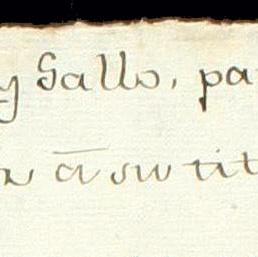 y Gallo, pa
n ā su tit